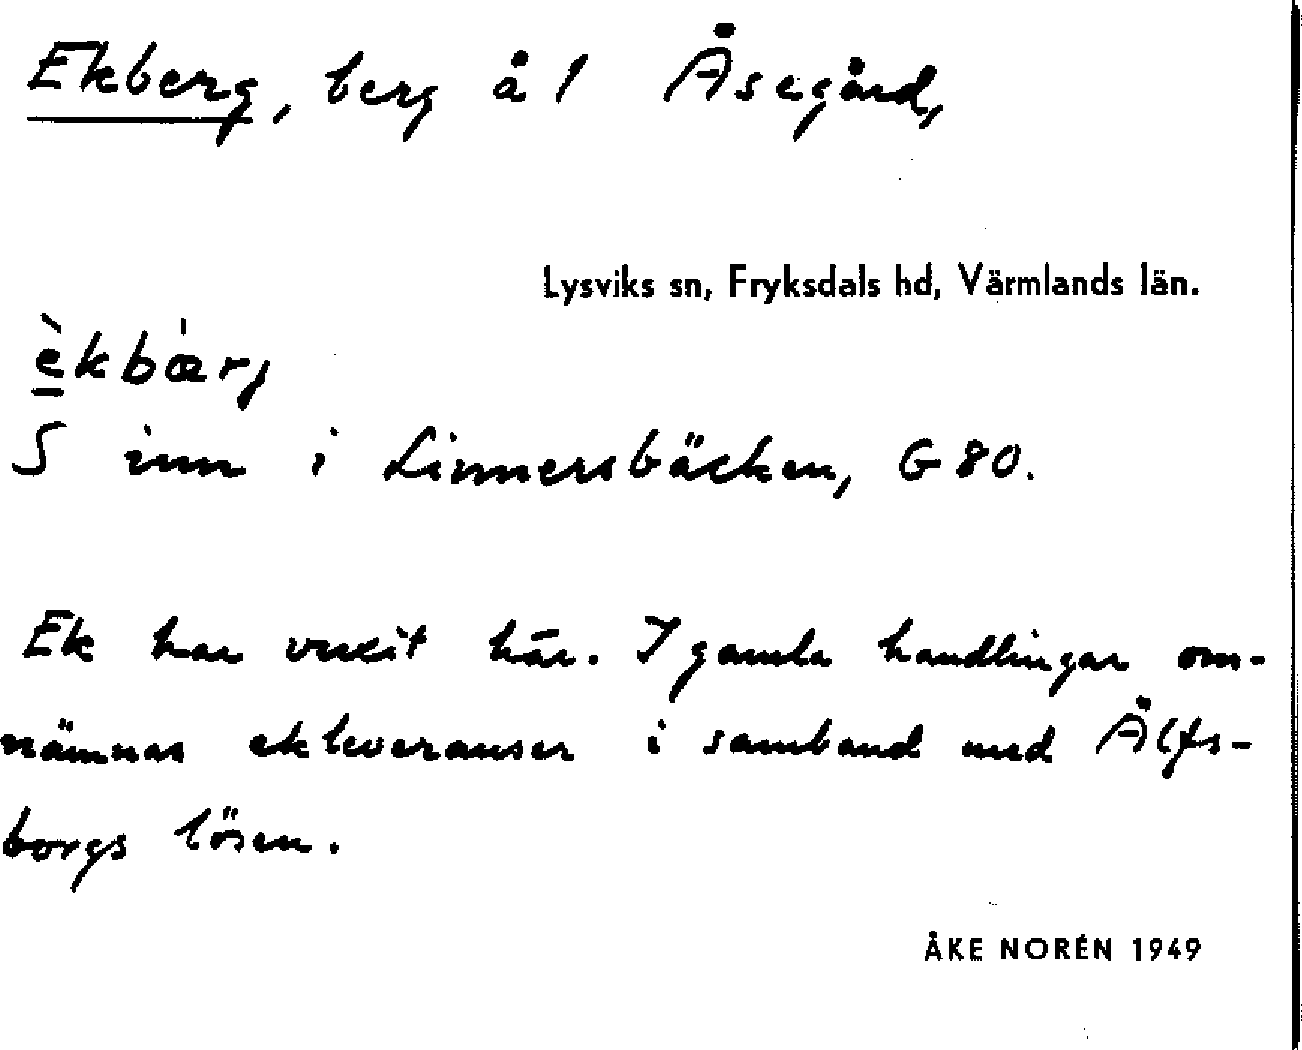 Ekberg, berg å 1 Åsegård,
Lysviks sn, Fryksdals hd, Värmlands län.
èkbæ̀rj
S inn i Linnersbäcken, G 80.
Ek har vuxit här. I gamla handlingar om-
nämnas ekleveranser i samband med Älfs-
borgs lösen.
ÅKE NORÉN 1949